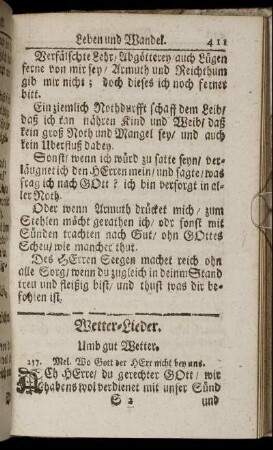 Leben und Wandel. 411
Verfälschte Lehr/ Abgötterey auch Lügen
ferne von mir sey/ Armuth und Reichthum
gib mir nicht; doch dieses ich noch ferner
bitt.
Ein ziemlich Nothdurfft schaff dem Leib/
daß ich kan nähren Kind und Weib/ daß
kein groß Noth und Mangel sey/ und auch
kein Uberfluß dabey.
Sonst/ wenn ich würd zu satte seyn/ ver-
läugnet ich den HErren mein/ und sagte/ was
frag ich nach GOtt? ich bin versorgt in al-
ler Noth.
Oder wenn Armuth drücket mich/ zum
Stehlen möcht gerathen ich/ odr sonst mit
Sünden trachten nach Gut/ ohn GOttes
Scheu/ wie mancher thut.
Des HErren Seegen machet reich ohn
alle Sorg/ wenn du zugleich in deinm Stand
treu und fleißig bist/ und thust was dir be-
fohlen ist.
Wetter-Lieder.
Umb gut Wetter.
257. Mel. Wo Gott der HErr nicht bey uns.
ACh HErre/ du gerechter GOtt/ wir
habens wol verdienet mit unser Sünd
S 2 und